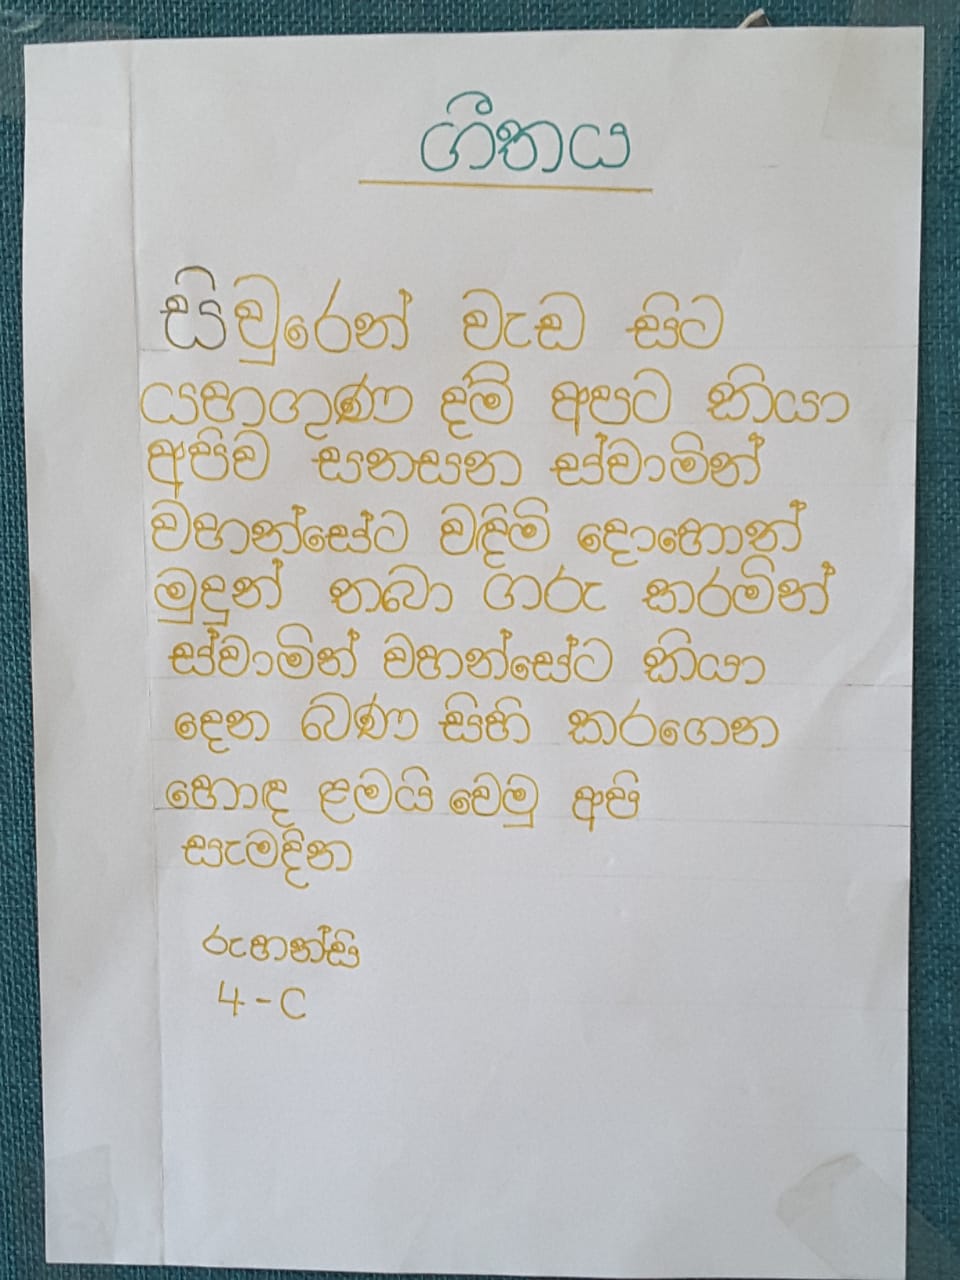 ගීතය
සිවුරෙන් වැඩ සිට
යහගුණ දම් අපට කියා
අපිව සනසන ස්වාමින්
වහන්සේට වඳිමි දොහොත්
මුදුන් තබා ගරු කරමින්
ස්වාමින් වහන්සේට කියා
දෙන බණ සිහි කරගෙන
හොඳ ළමයි වෙමු අපි
සැමදින
රුහන්සි
4 - C